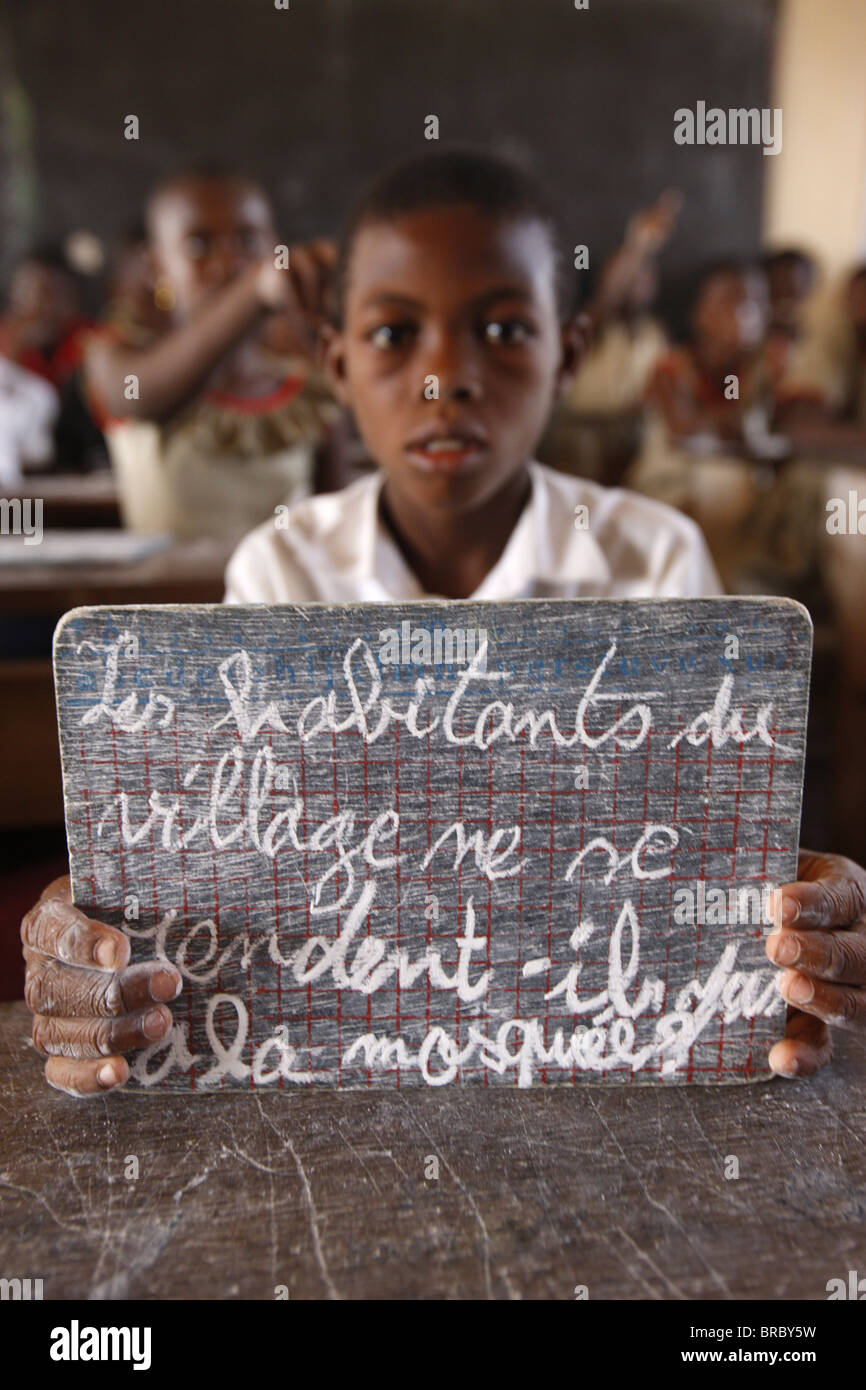 abcdefghijklmnopqrstuvwxyz
Les habitants du
village ne se
rendent-il pas
a la mosquée?
alamy
alamy
Image ID: BRBY5W
www.alamy.com